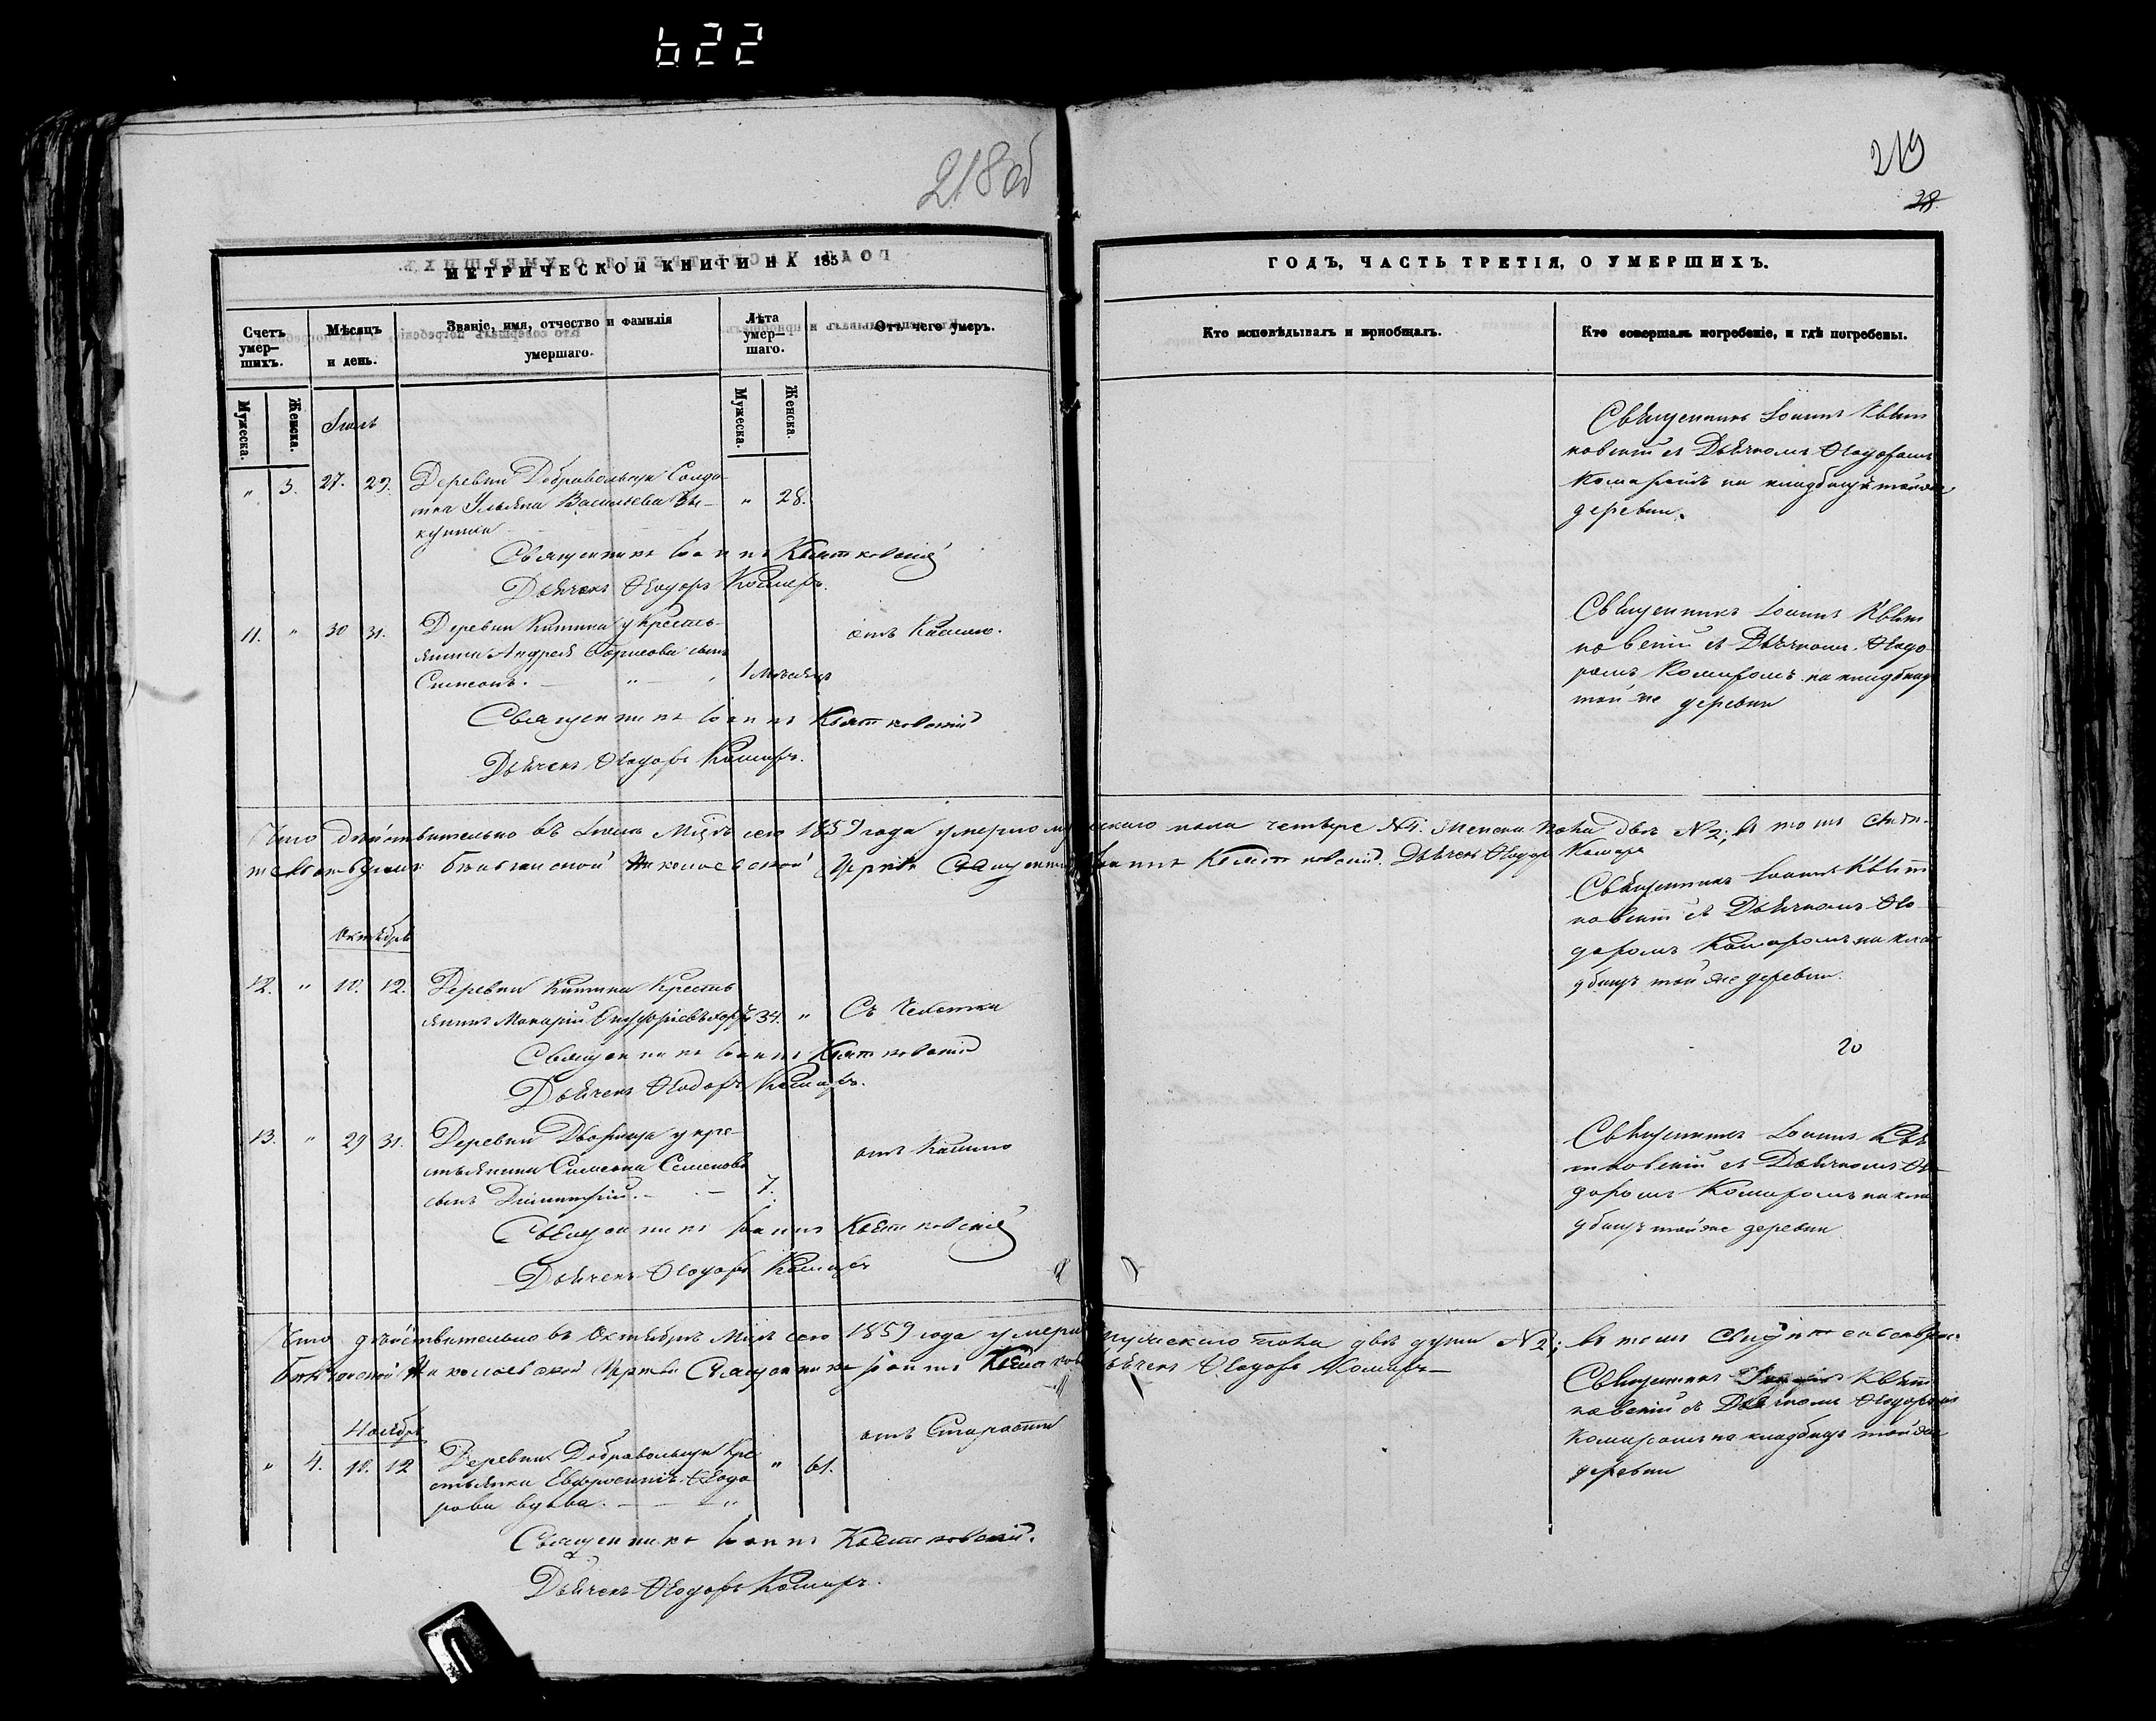 622
218об
219
28
МЕТРИЧЕСКОЙ КНИГИ НА 185
ГОДЪ, ЧАСТЬ ТРЕТІЯ, О УМЕРШИХЪ.
Счетъ умер–шихъ.
Мѣсяцъ и день.
Званіе, имя, отчество и фамилія умершаго.
Лѣта умер–шаго.
Отъ чего умеръ.
Кто исповѣдывалъ и пріобщалъ.
Кто совершалъ погребеніе, и гдѣ погребены.
Мужеска.
Женска.
Мужеска.
Женска.
Іюль
" 3. 27. 29. Деревни Добраволыци Солда-
тка Ульяна Васильева " 28.
Священникъ Іоаннъ Квятковскій
Дьячекъ Ѳеодоръ Комаръ.
Священникъ Іоаннъ Квят
ковскій съ Дьячкомъ Ѳеодоромъ
Комаромъ на кладбищѣ той же
деревни.
11. " 30 31. Деревни у Крестъ-
янина Андрея Борисова сынъ
Симеонъ. 1 Мѣсяцъ
отъ Кашлю.
Священникъ Іоаннъ Квятковскій
Дьячекъ Ѳеодоръ Комаръ.
Священникъ Іоаннъ Квят
ковскій съ Дьячкомъ Ѳеодо
ромъ Комаромъ на кладбищѣ
той же деревни
Что дѣйствительно въ Іюлѣ Мцѣ сего 1859 года умерло мужескаго пола четыре №4. Женска пола двѣ №2; въ томъ
Николаевской Церкви Священникъ Іоаннъ Квятковскій. Дьячекъ Ѳеодоръ Комаръ
Октябрь
12. " 10. 12. Деревни Крестъ
янинъ Макарій Онуфріевъ 34. " Съ Чехотки
Священникъ Іоаннъ Квятковскій
Дьячекъ Ѳеодоръ Комаръ.
Священникъ Іоаннъ Квят
ковскій съ Дьячкомъ Ѳео
доромъ Комаромъ на кла
дбищѣ той же деревни.
20
13. " 29 31. Деревни Дворища у кре-
стьянина Симеона Семенова
сынъ Димитрій. 7.
отъ Кашлю
Священникъ Іоаннъ Квятковскій
Дьячекъ Ѳеодоръ Комаръ
Священникъ Іоаннъ Квя
тковскій съ Дьячкомъ Ѳео
доромъ Комаромъ на кла
дбищѣ той же деревни.
Что дѣйствительно въ Октябрѣ Мцѣ сего 1859 года умерло мужескаго пола двѣ души №2; въ томъ
Николаевской Церкви Священникъ Іоаннъ Дьячекъ Ѳеодоръ Комаръ
Ноябрь
" 4. 10. 12 Деревни Добраволыци Кре
стьянка Евфросинія Ѳеодо
рова вдова. " 61.
отъ Старости
Священникъ Іоаннъ Квятковскій.
Дьячекъ Ѳеодоръ Комаръ.
Священникъ Квят
ковскій съ Дьячкомъ Ѳеодоромъ
Комаромъ на кладбищѣ той же
деревни